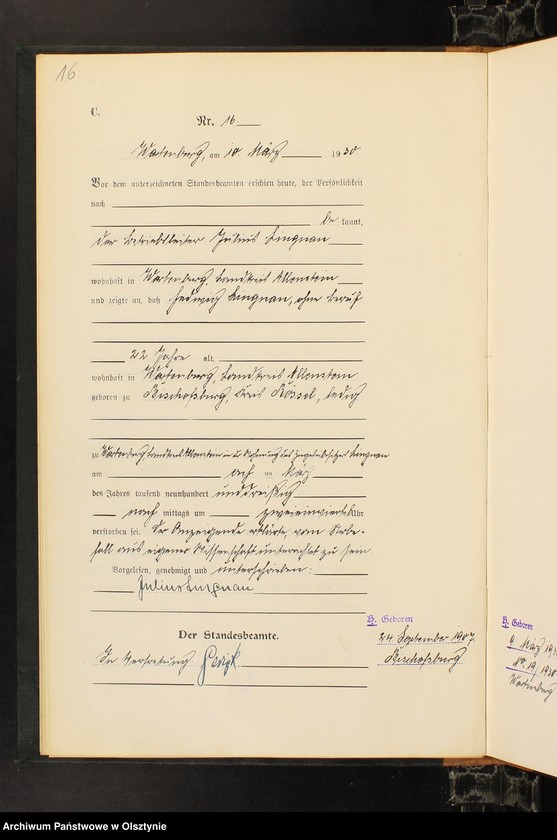 16
C.
Nr. 16
Wartenburg, am 10. März 1930.
Vor dem unterzeichneten Standesbeamten erschien heute, der Persönlichkeit
nach
be kannt,
der Betriebsleiter Julius Lingnau
wohnhaft in Wartenburg, Landkreis Allenstein
und zeigte an, daß Hedwig Lingnau, ohne Beruf
22 Jahre alt,
wohnhaft in Wartenburg, Landkreis Allenstein
geboren zu Bischofsburg, Kreis Rössel, ledig
zu Wartenburg Landkreis Allenstein in der Wohnung des Lingnau
am acht ten März
des Jahres tausend neunhundert unddreißig
nach mittags um zweieinviertel Uhr
verstorben sei. Der Anzeigende erklärte, vom Sterbe-
fall aus eigener Wissenschaft unterrichtet zu sein
Vorgelesen, genehmigt und unterschrieben:
Julius Lingnau
Der Standesbeamte.
In Vertretung
H. Geboren
24. September 1907.
Bischofsburg
H. Geboren
9 März
No. 19/1938
Wartenburg
Archiwum Państwowe w Olsztynie